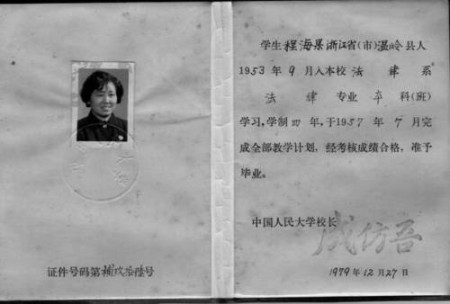 证件号码第補 号
学生程海 浙江省(市)温岭县人
1953年9月入本校法律系
法律专业本科(班)
学习,学制四年,于1957年7月完
成全部教学计划,经考核成绩合格,准予
毕业。
中国人民大学校长
成仿吾
1979年12月27日